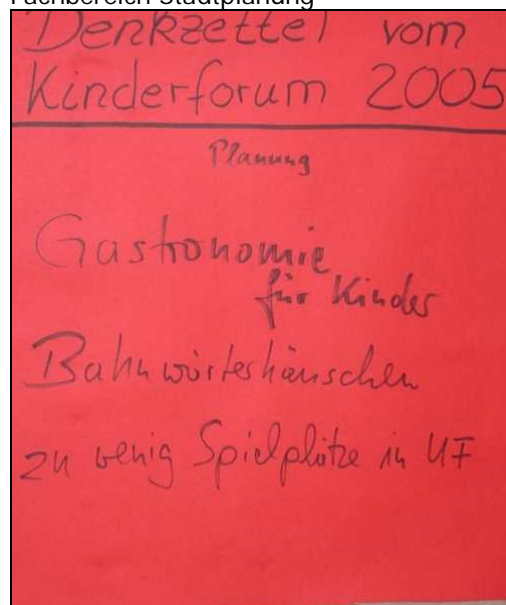 Fachbereich Stadtplanung
Denkzettel vom
Kinderforum 2005
Planung
Gastronomie
für Kinder
Bahnwörteshäuschen
zu wenig Spielplätze in UF